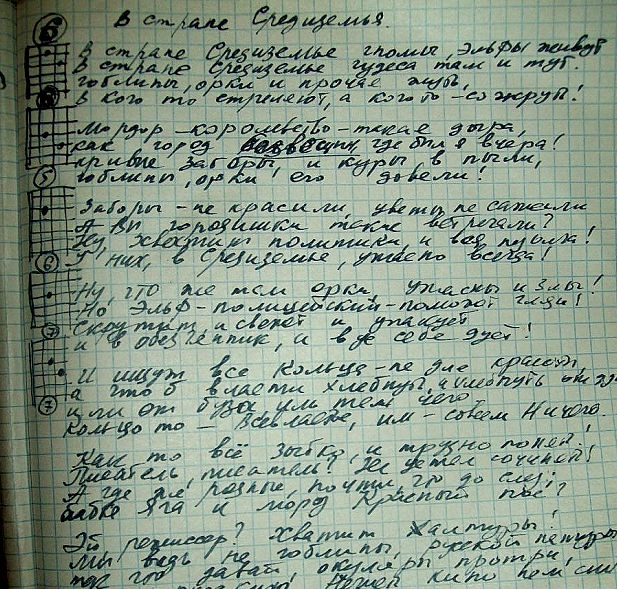 В стране Средиземья.
В стране Средиземье гномы, эльфы живут
В стране Средиземье чудеса там и тут.
гоблины, орки и прочая жуть,
В кого то стреляют, а кого то - сожрут!
Мордор - королевство - такая дыра,
как город где был я вчера!
кривые заборы, и куры в пыли,
гоблины, орки его довели!
Заборы - не красили, цветы не сажали
А Вы городишки такие встречали?
Ну, хватит политики, и
У них, в Средиземье, ужасно всегда!
Ну, что же там орки ужасны и злы!
Но Эльф - полицейский - поможет
Скрутит, и свежет и упакует
и в обезьянник, и
И ищут все Кольца - не для красоты,
а что б власти хлебнуть, и хлебнуть
или от буды, или тем чего
Кольцо то - Всевластье, им - совсем Ничего.
Как то всё зыбко, и трудно понять!
Писатель, писатель? Не устал сочинять!
А где же, родные, почти, что до слез,
бабка Яга и мороз Красный нос?
Эй режиссер? Хватит Халтуры!
Мы ведь не гоблины, русской натуры
так что давай, окуляры протри,
кино